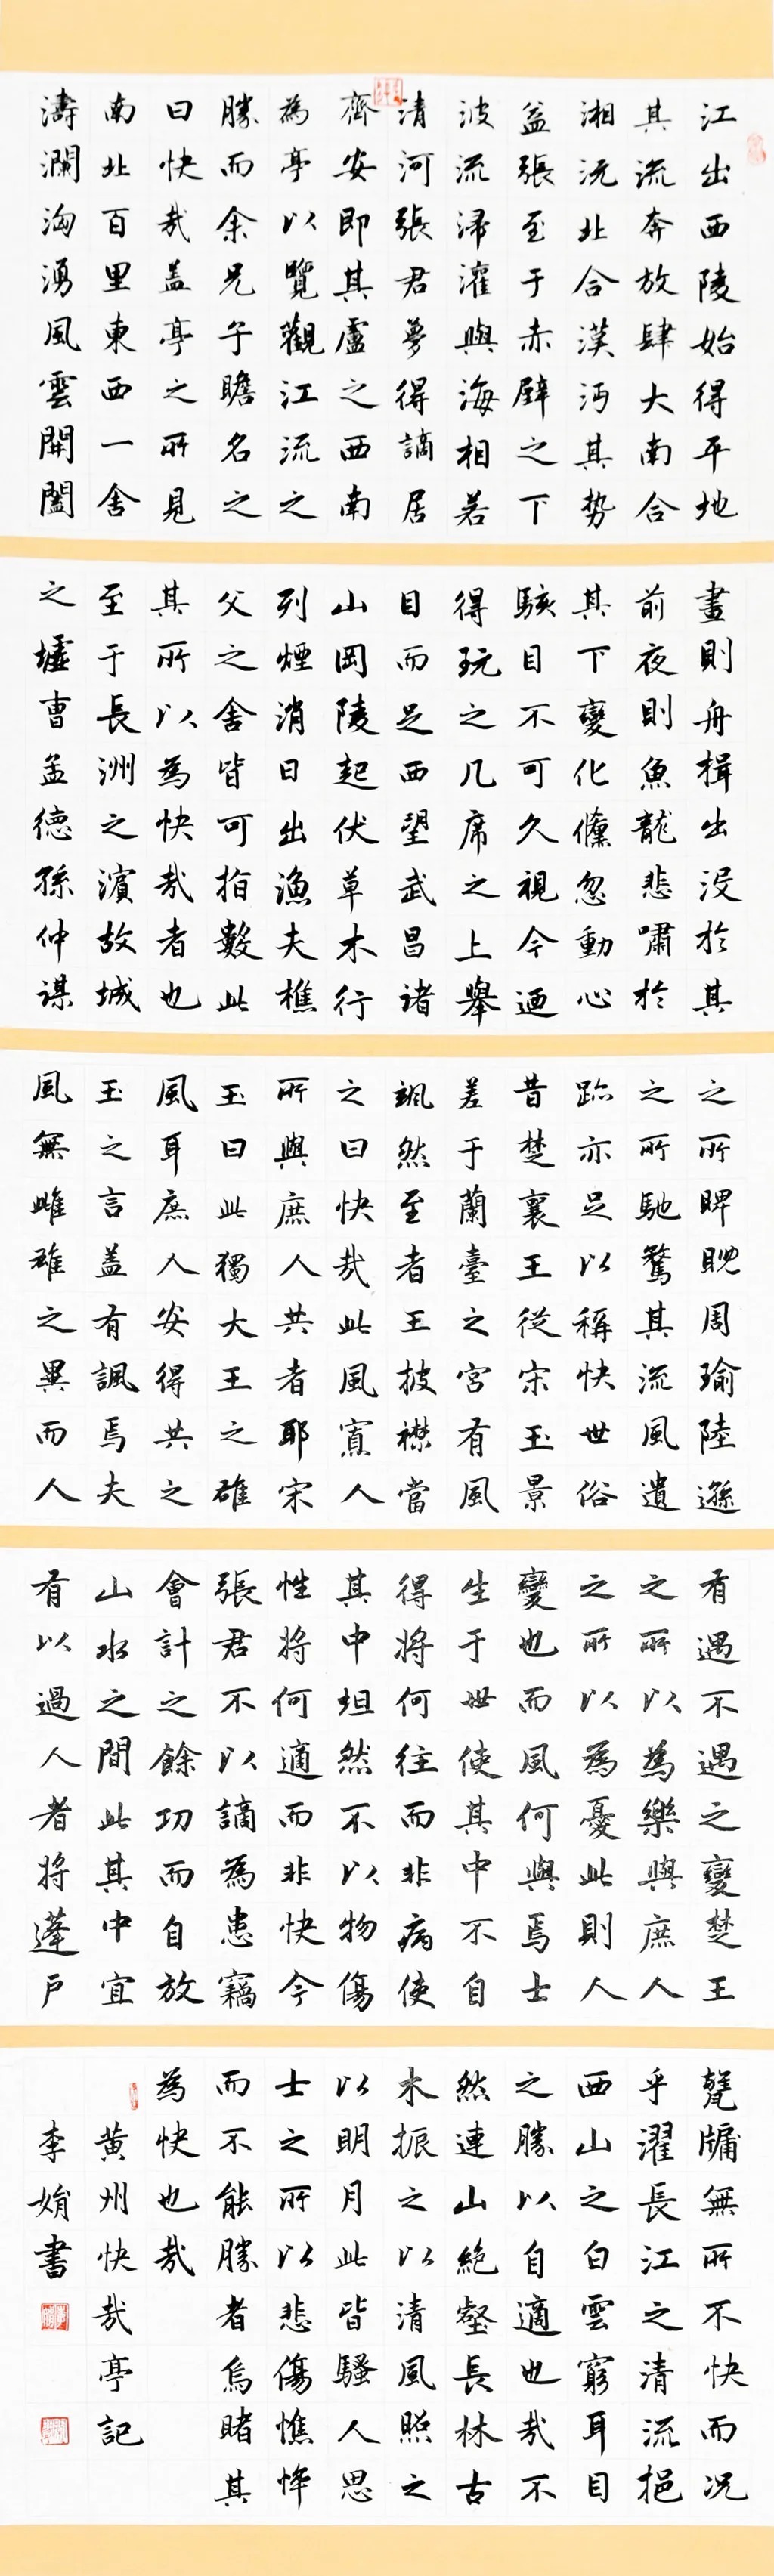 江出西陵始得平地
其流奔放肆大南合
湘沅北合漢沔其势
益張至于赤壁之下
波流浸灌與海相若
清河張君夢得謫居
齊安即其廬之西南
為亭以覽觀江流之
勝而余兄子瞻名之
曰快哉盖亭之所見
南北百里東西一舍
濤瀾洶湧風雲開闔
晝則舟楫出没於其
前夜則魚龍悲嘯於
其下變化儵忽動心
駭目不可久視今迺
得玩之几席之上舉
目而足西望武昌诸
山岡陵起伏草木行
列煙消日出漁夫樵
父之舍皆可指數此
其所以為快哉者也
至于長洲之濱故城
之墟曹孟德孫仲謀
之所睥睨周瑜陸遜
之所馳騖其流風遺
跡亦足以稱快世俗
昔楚襄王從宋玉景
差于蘭臺之宮有風
颯然至者王披襟當
之曰快哉此風寡人
所與庶人共者耶宋
玉曰此獨大王之雄
風耳庶人安得共之
玉之言盖有諷焉夫
風無雌雄之異而人
有遇不遇之變楚王
之所以為樂與庶人
之所以為憂此則人
變也而風何與焉士
生于世使其中不自
得将何往而非病使
其中坦然不以物傷
性将何適而非快今
張君不以謫為患竊
會計之餘功而自放
山水之間此其中宜
有以過人者将蓬户
甕牖無所不快而况
乎濯長江之清流挹
西山之白雲窮耳目
之勝以自適也哉不
然連山絶壑長林古
木振之以清風照之
以明月此皆騷人思
士之所以悲傷憔悴
而不能勝者烏睹其
為快也哉
黄州快哉亭記
李娋書